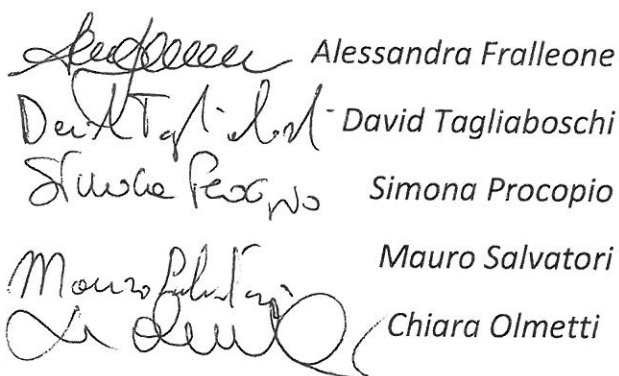 Alessandra Fralleone
David Tagliaboschi David Tagliaboschi
Simona Procopio Simona Procopio
Mauro Salvatori
Mauro Salvatori
Chiara Olmetti